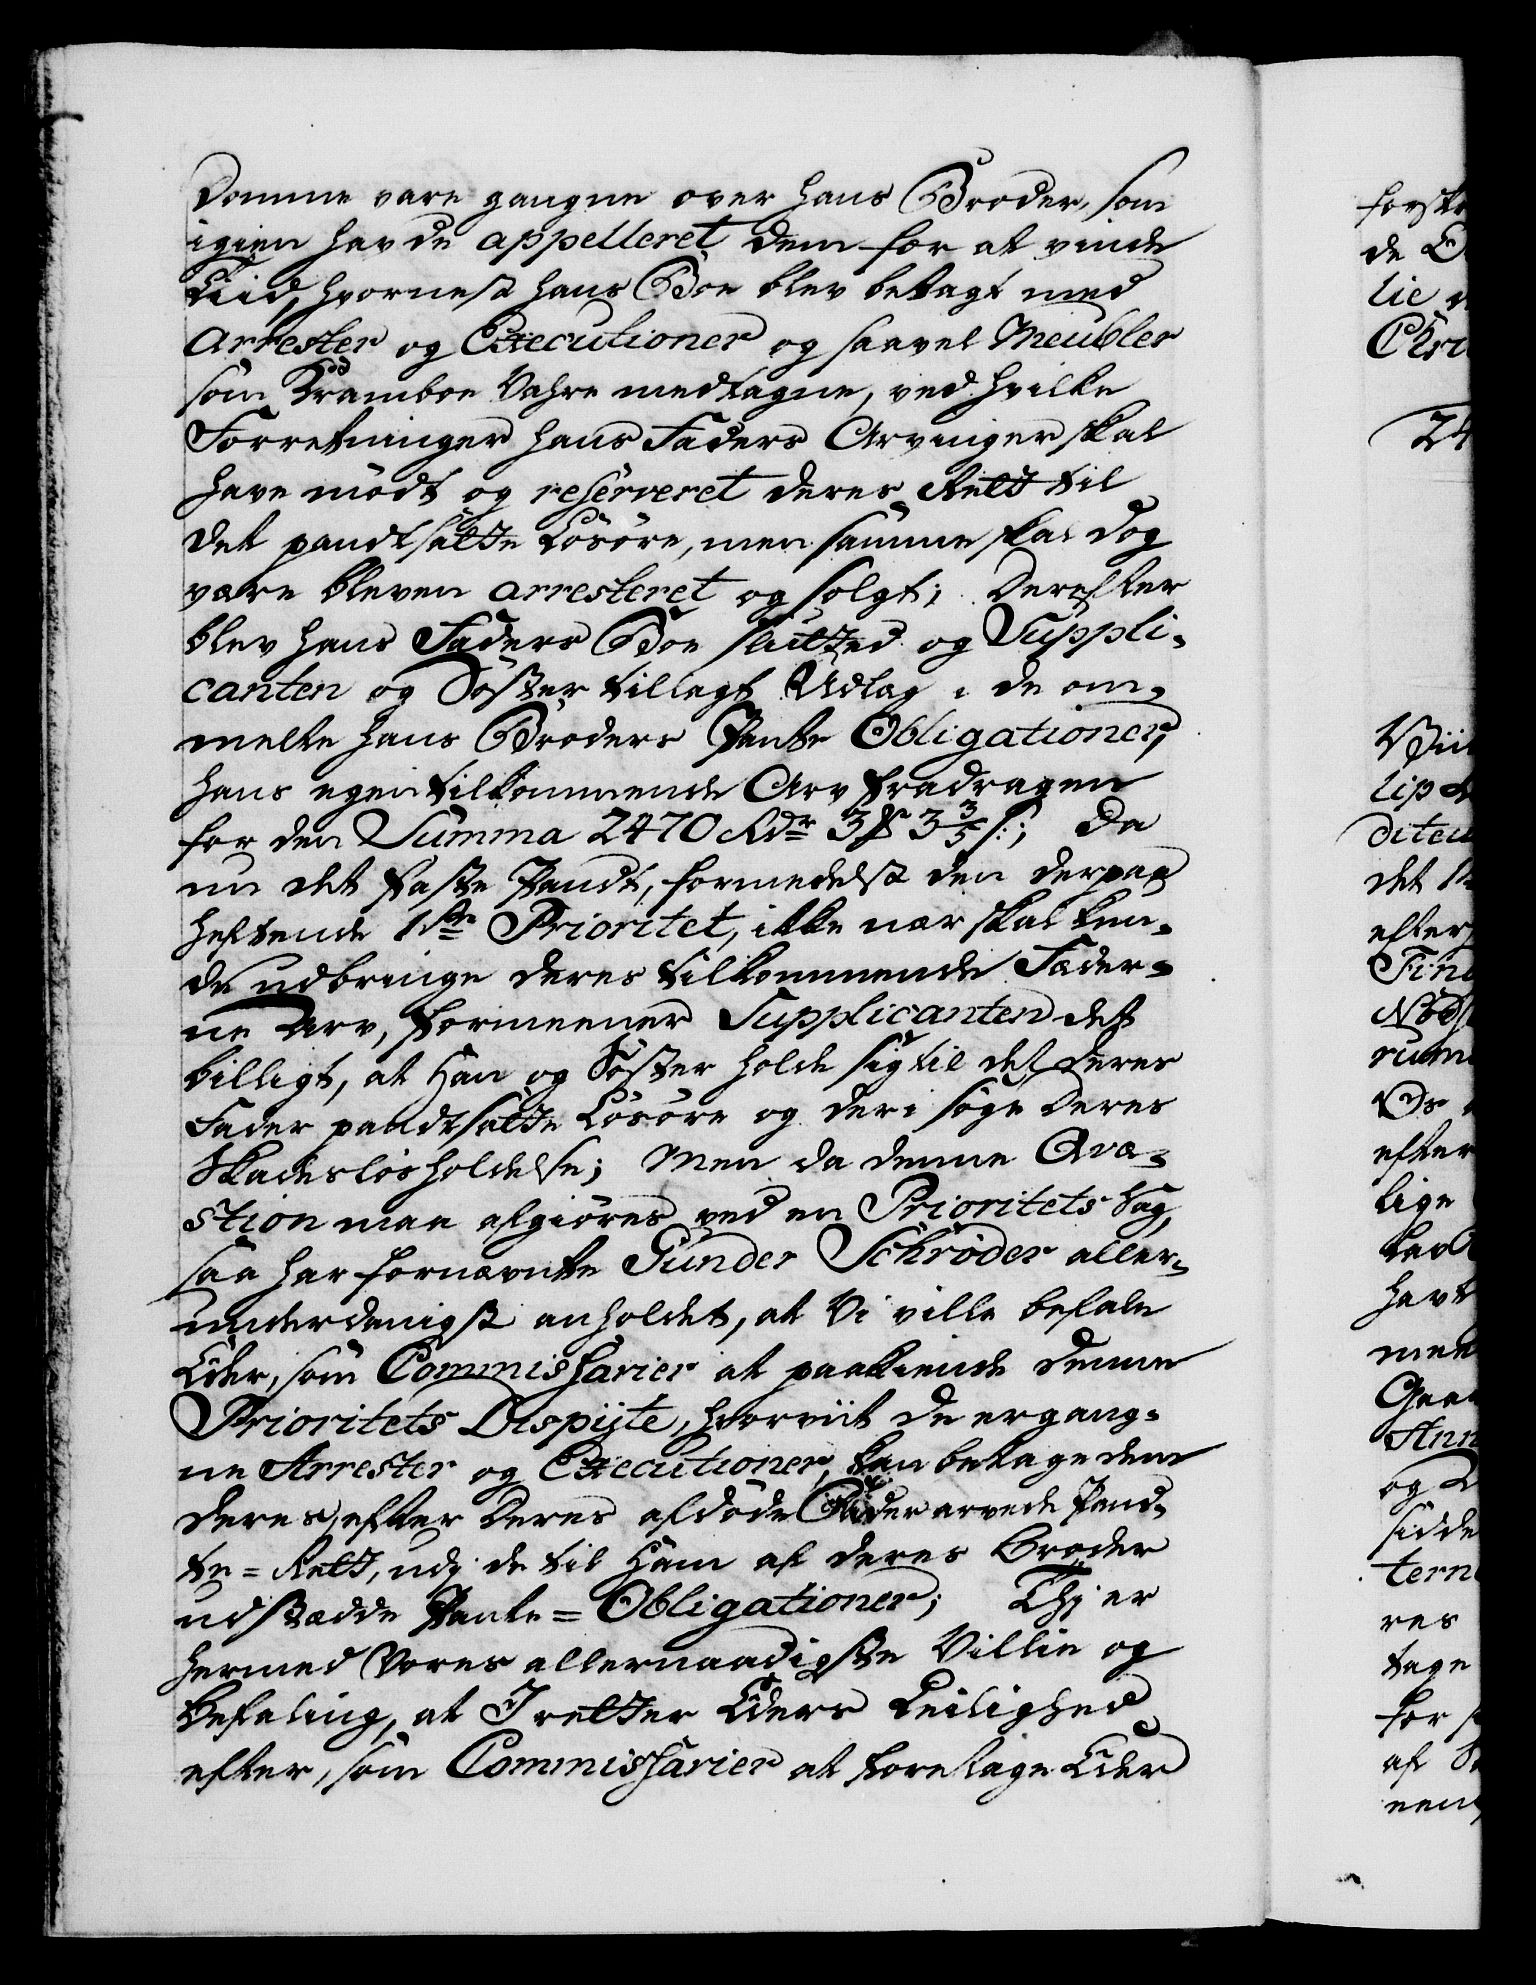 Domme vare gangne over hans Broder, som
igien havde appelleret dem for at vinde
Tiid, hvornest hans Boe blev betagt med
Arrester og Executioner og saavel Meubler
som Kramboe Vahre medtagne, ved hvilke
Forretninger hans Faders Arvinger skal
have mödt og reserveret deres Rett til
det pandtsatte Lösöre, men samme skal dog
være bleven arresteret og solgt; Derefter
blev hans Faders Boe slutted og Suppli-
canten og Söster tillagt Udlag i de om-
melte hans Broders Pante Obligationer,
hans egen tilkommende Arv fradragen
for den Summa 2470 Rdr 3 ₰ 3 3/5 s.; Da
nu det faste Pandt, formedelst den derpaa
heftende 1ste Prioritet, ikke nær skal kun-
de udbringe deres tilkommende Fæder-
ne Arv, formeener Supplicanten det
billigt, at Han og Söster holde sig til det deres
Fader pandtsatte Lösöre og deri söge deres
Skadeslösholdelse; Men da denne Qvæ-
stion maa afgiöres ved en Prioritets Sag,
saa har fornævnte Gunder Schröder aller-
underdanigst anholdet, at Vi ville befale
Eder, som Commissarier at paakiende denne
Prioritets Dispüte, hvorviit de ergang-
ne Arrester og Executioner kan betage dem
deres, efter deres afdöde Fader arvede Pand-
te-Rett, udj de til Ham af deres Broder
udstædde Pante-Obligationer; Thj er
hermed Vores allernaadigste Villie og
Befaling, at I retter Eders Leilighed
efter, som Commissarier at foretage Eder